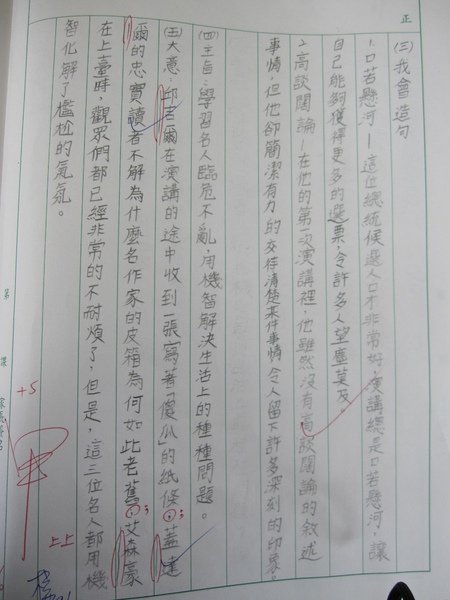 正
(三)我會造句
1.口若懸河—這位總統候選人口才非常好,演講總是口若懸河,讓
自己能夠獲得更多的選票,令許多人望塵莫及。
2.高談闊論—在他的第一次演講裡,他雖然沒有高談闊論的敘述
事情,但他卻簡潔有力的交待清楚某件事情,令人留下許多深刻的印象。
(四)主旨:學習名人臨危不亂,用機智解決生活上的種種問題。
(五)大意:邱吉爾在演講的途中收到一張寫著「傻瓜」的紙條;蓋達
爾的忠實讀者不解為什麼名作家的皮箱為何如此老舊;艾森豪
在上臺時,觀眾們都已經非常的不耐煩了,但是,這三位名人都用機
智化解了尷尬的氣氛。
第 課
+5
上上